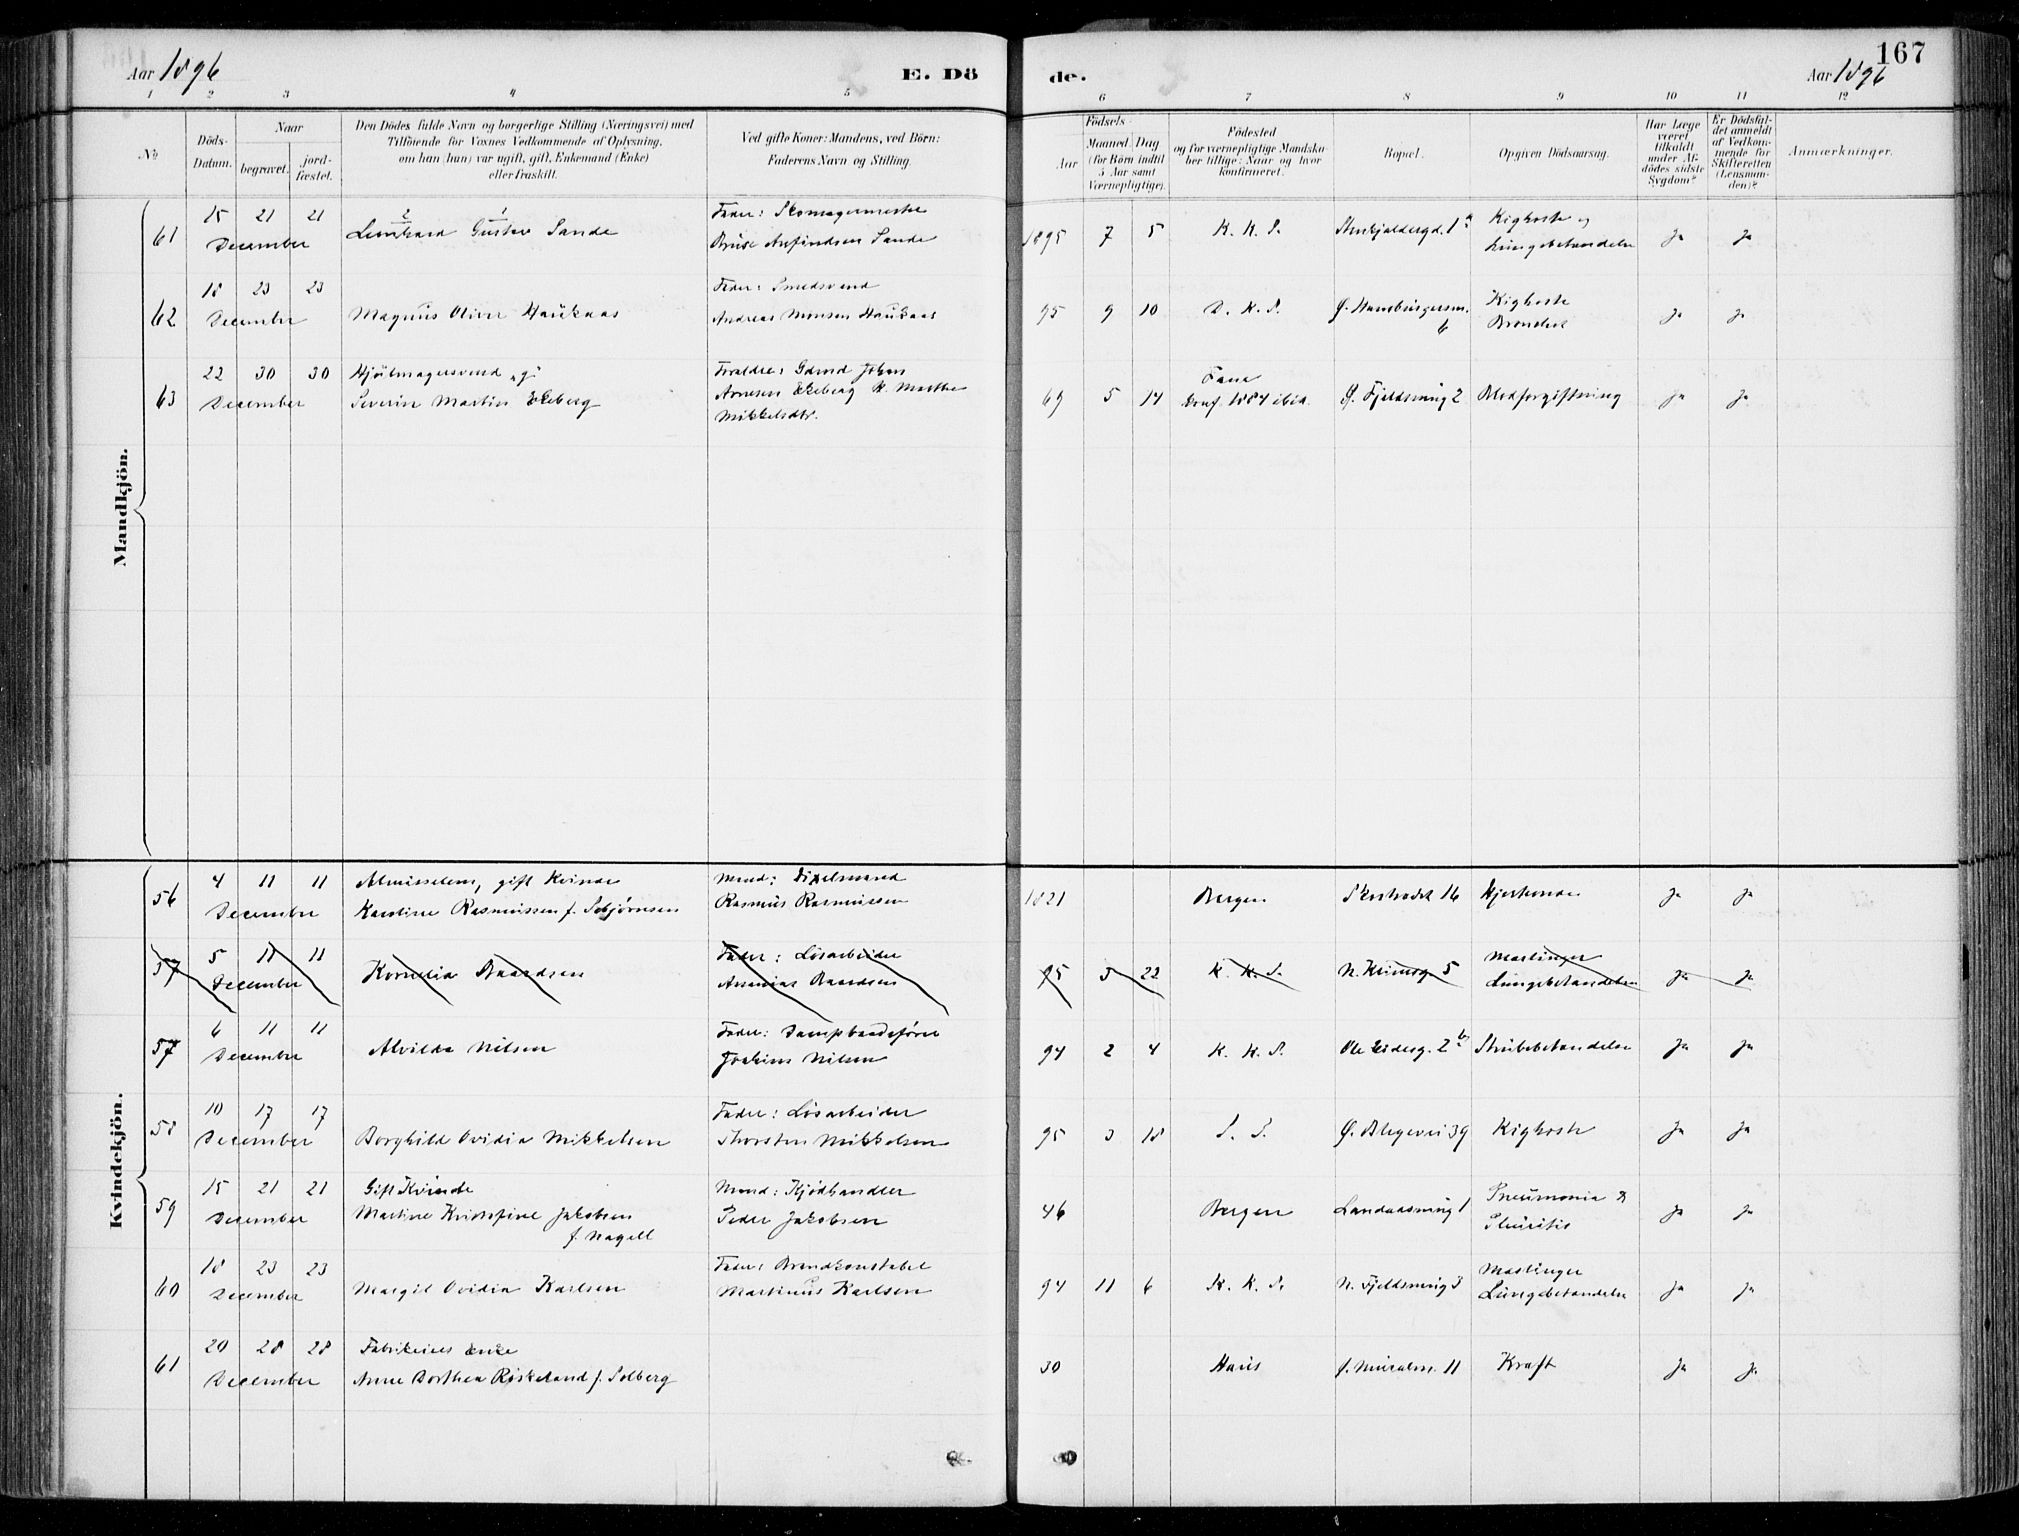 Aar 1896
E. Dö
de.
Aar 1896
167
1 2 3 4 5 6 7 8 9 10 11 12
No
Döds-Datum.
Naar
begravet.
jord-fæstet.
Den Dödes fulde Navn og borgerlige Stilling (Næringsvei) med
Tilföiende for Voxnes Vedkommende af Oplysning,
om han (hun) var ugift, gift, Enkemand (Enke)
eller fraskilt.
Ved gifte Koner: Mandens, ved Börn:
Faderens Navn og Stilling.
Födsels-
Aar
Maaned. Dag
(for Börn indtil
5 Aar samt
Værnepligtige).
Födested
og for værnepligtige Mandska-
ber tillige: Naar og hvor
konfirmeret.
Bopæl.
Opgiven Dödsaarsag.
Har Læge
været
tilkaldt
under Af-
dödes sidste
Sygdom?
Er Dödsfal-
det anmeldt
af Vedkom-
mende for
Skifteretten
(Lensman-
den)?
Anmærkninger.
Mandkjön.
61 15 21 21 December
2 1
Leonhard Gustav Sande
Fader: Skomagermester
Brüse Anfindsen Sande
1895 7 5 K. K. S.
Kighoste og
Lungebetændelse
Ja Ja
62 18 23 23 December
Magnus Oliver Haukaas
Fader: Smedsvend
Andreas Monsen Haukaas
95 9 10 D. K. S.
Kighoste
Ja Ja
63 22 30 30 December
Hjulmagersvend "g"
Severin Martin Ekeberg
Forældre: Gdmd Johan
Arnesen Ekeberg H. Marthe
Mikkelsdtr.
69 5 14
Fana
konf. 1884 ibid.
Ø. Fjeldsmug 2
Blodforgiftning
Ja Ja
Kvindekjön.
56 4 11 11 December
Almisselem, gift Kvinde
Karoline Rasmussen f. Sebjørnsen
Mand: Sjøelmand
Rasmus Rasmussen
1821 Bergen
16
Ja Ja
57 5 11 11 December
Kornelia Baardsen
Fader: Løsarbeider
Ananias Baardsen
95 5 22 K. K. S.
5
Mæslinger
Lungebetændelse
Ja Ja
57 6 11 11 December
Alvilda Nilsen
Fader: Dampbaadsfører
Joakim Nilsen
94 2 4 K. K. S.
Strubebetændelse
Ja Ja
58 10 17 17 December
Borghild Ovidia Mikkelsen
Fader: Løsarbeider
Thorsten Mikkelsen
95 3 18 S. S.
Ø. Blegevei 39
Kighoste
Ja Ja
59 15 21 21 December
Gift Kvinde
Martine Kristofine Jakobsen
f. Nagell
Mand: Kjødhandler
Peder Jakobsen
46 Bergen
Landaasmug 1
Pneumonia &
Pleuritis
Ja Ja
60 18 23 23 December
Margit Ovidia Karlsen
Fader: Brandkonstabel
Martinus Karlsen
94 11 6 K. K. S.
N. Fjeldsmug 3
Mæslinger
Lungebetændelse
Ja Ja
61 20 28 28 December
Fabrikeiers Enke
Anne Dorthea Riskeland f. Solberg
30 Haus
11
Kræft
Ja Ja